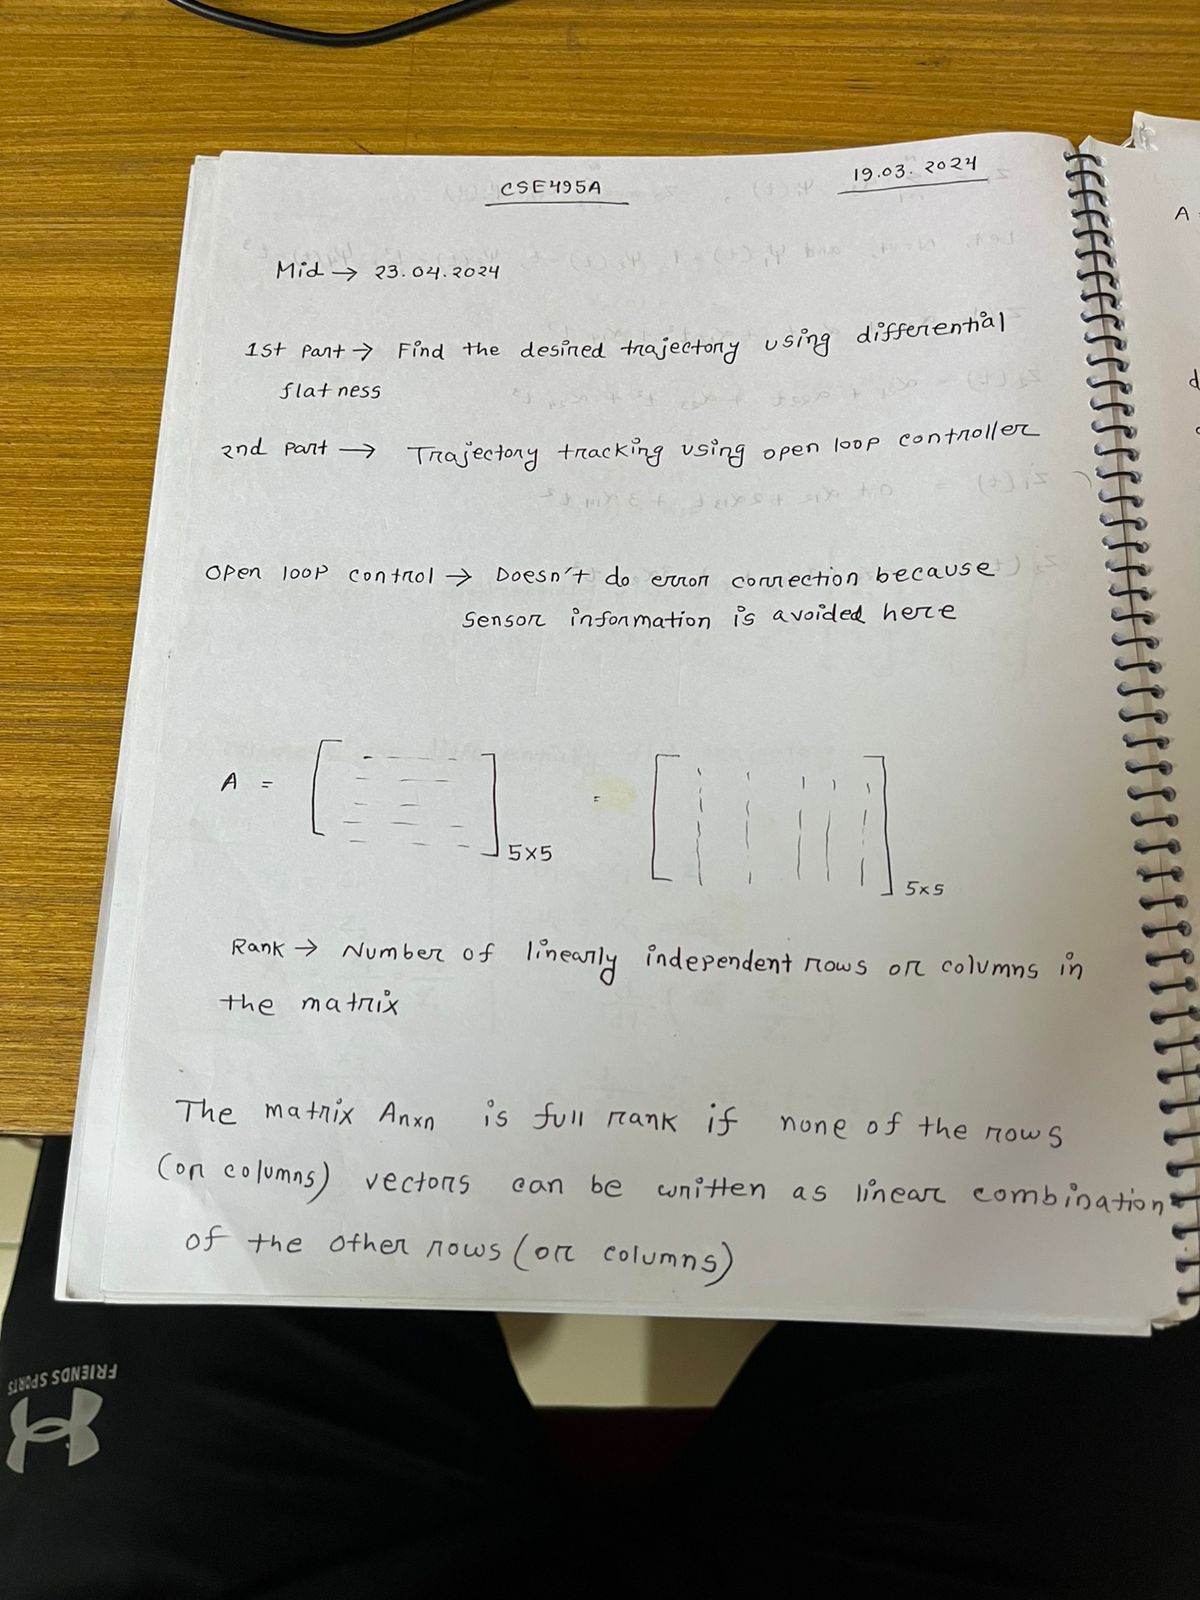 CSE495A
19.03.2024
Mid → 23.04.2024
1st Part → Find the desired trajectory using differential
flatness
2nd Part → Trajectory tracking using open loop controller
Open loop control → Doesn't do error correction because
sensor information is avoided here
A = [ ]5x5 = [ ]5x5
Rank → Number of linearly independent rows or columns in
the matrix
The matrix Anxn is full rank if none of the rows
(or columns) vectors can be written as linear combination
of the other rows (or columns)
A
d
FRIENDS SPORTS